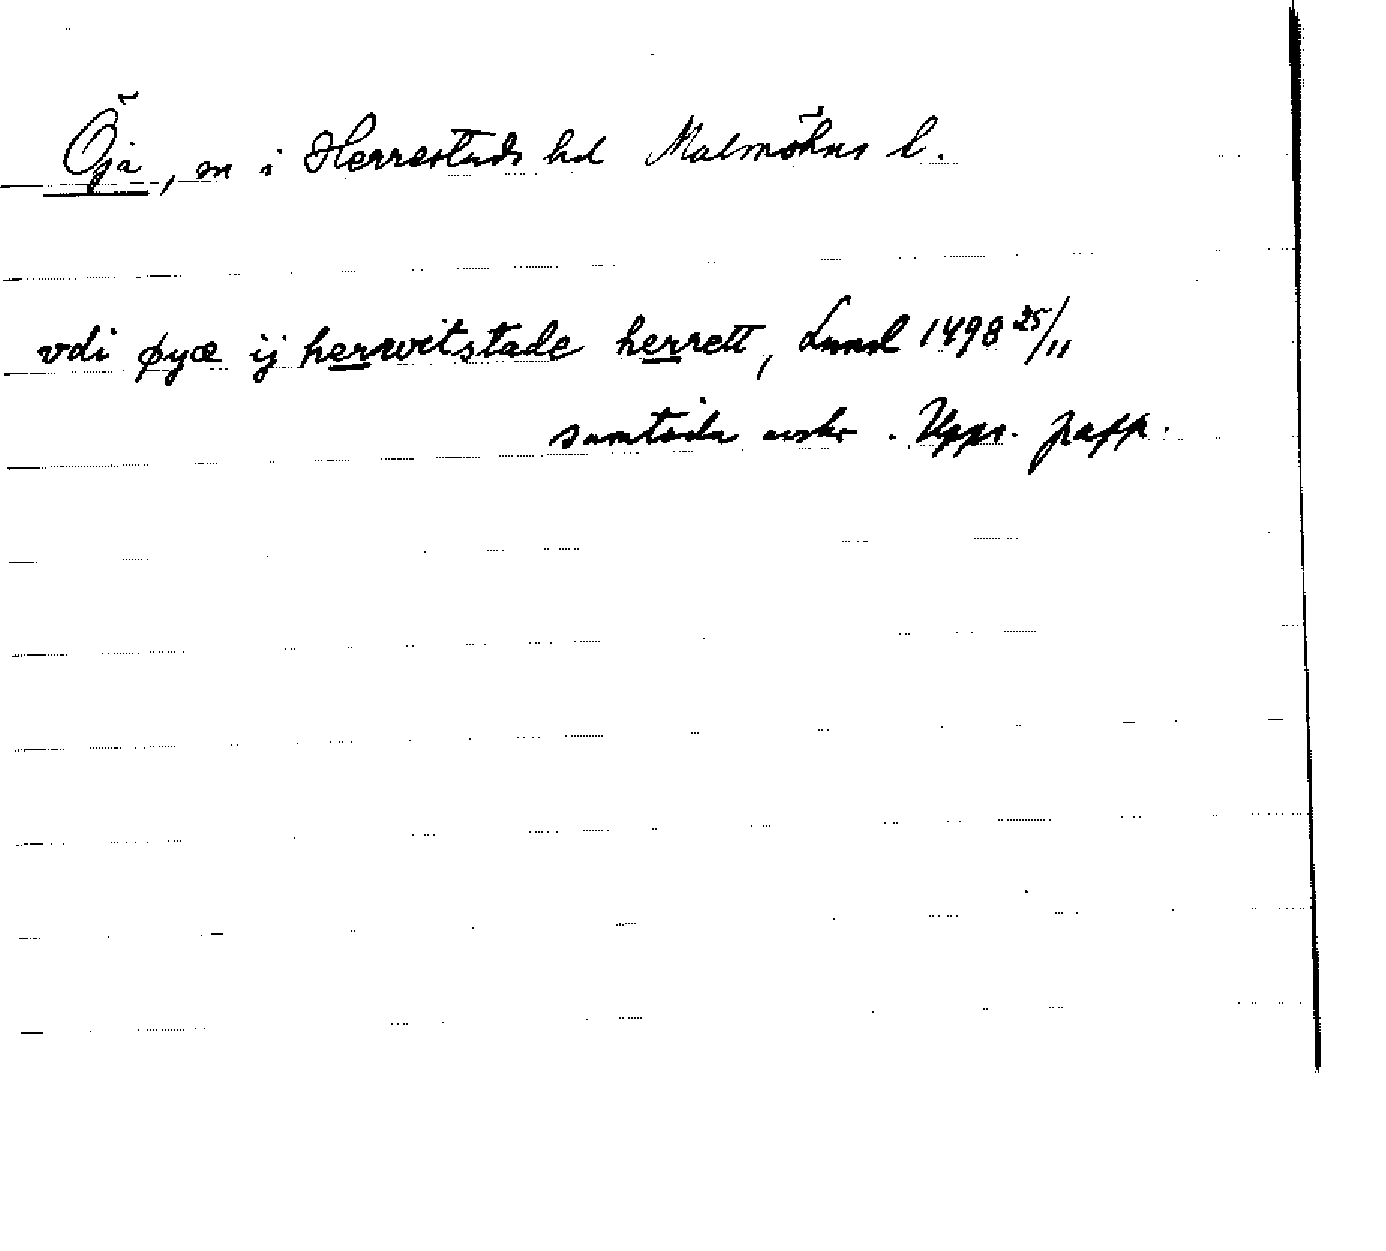 Öja, m i Herrestads hd Malmöhus l.
vdi øyæ ij herrwitstade herrett, Lund 1498 25/11
samtida avskr. Upps. papp.